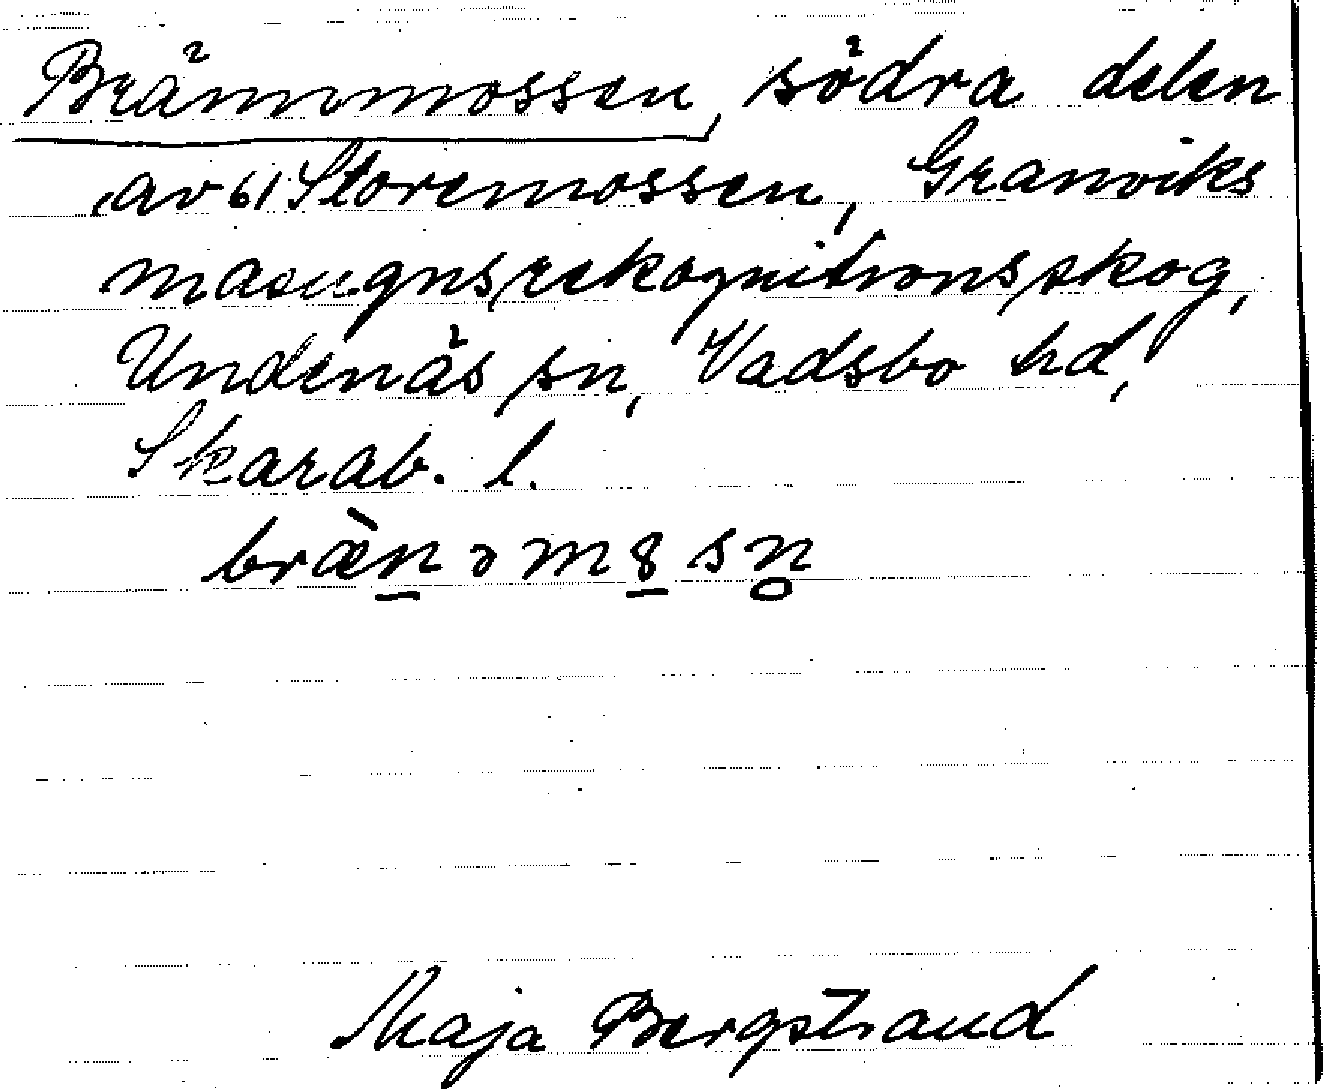 Brännmossen, södra delen
av 61 Storemossen, Granviks
masugnsrekognitionsskog,
Undenäs sn, Vadsbo hd,
Skarab. l.
bræ̀n̲əm8̲sn̥
Maja Bergstrand